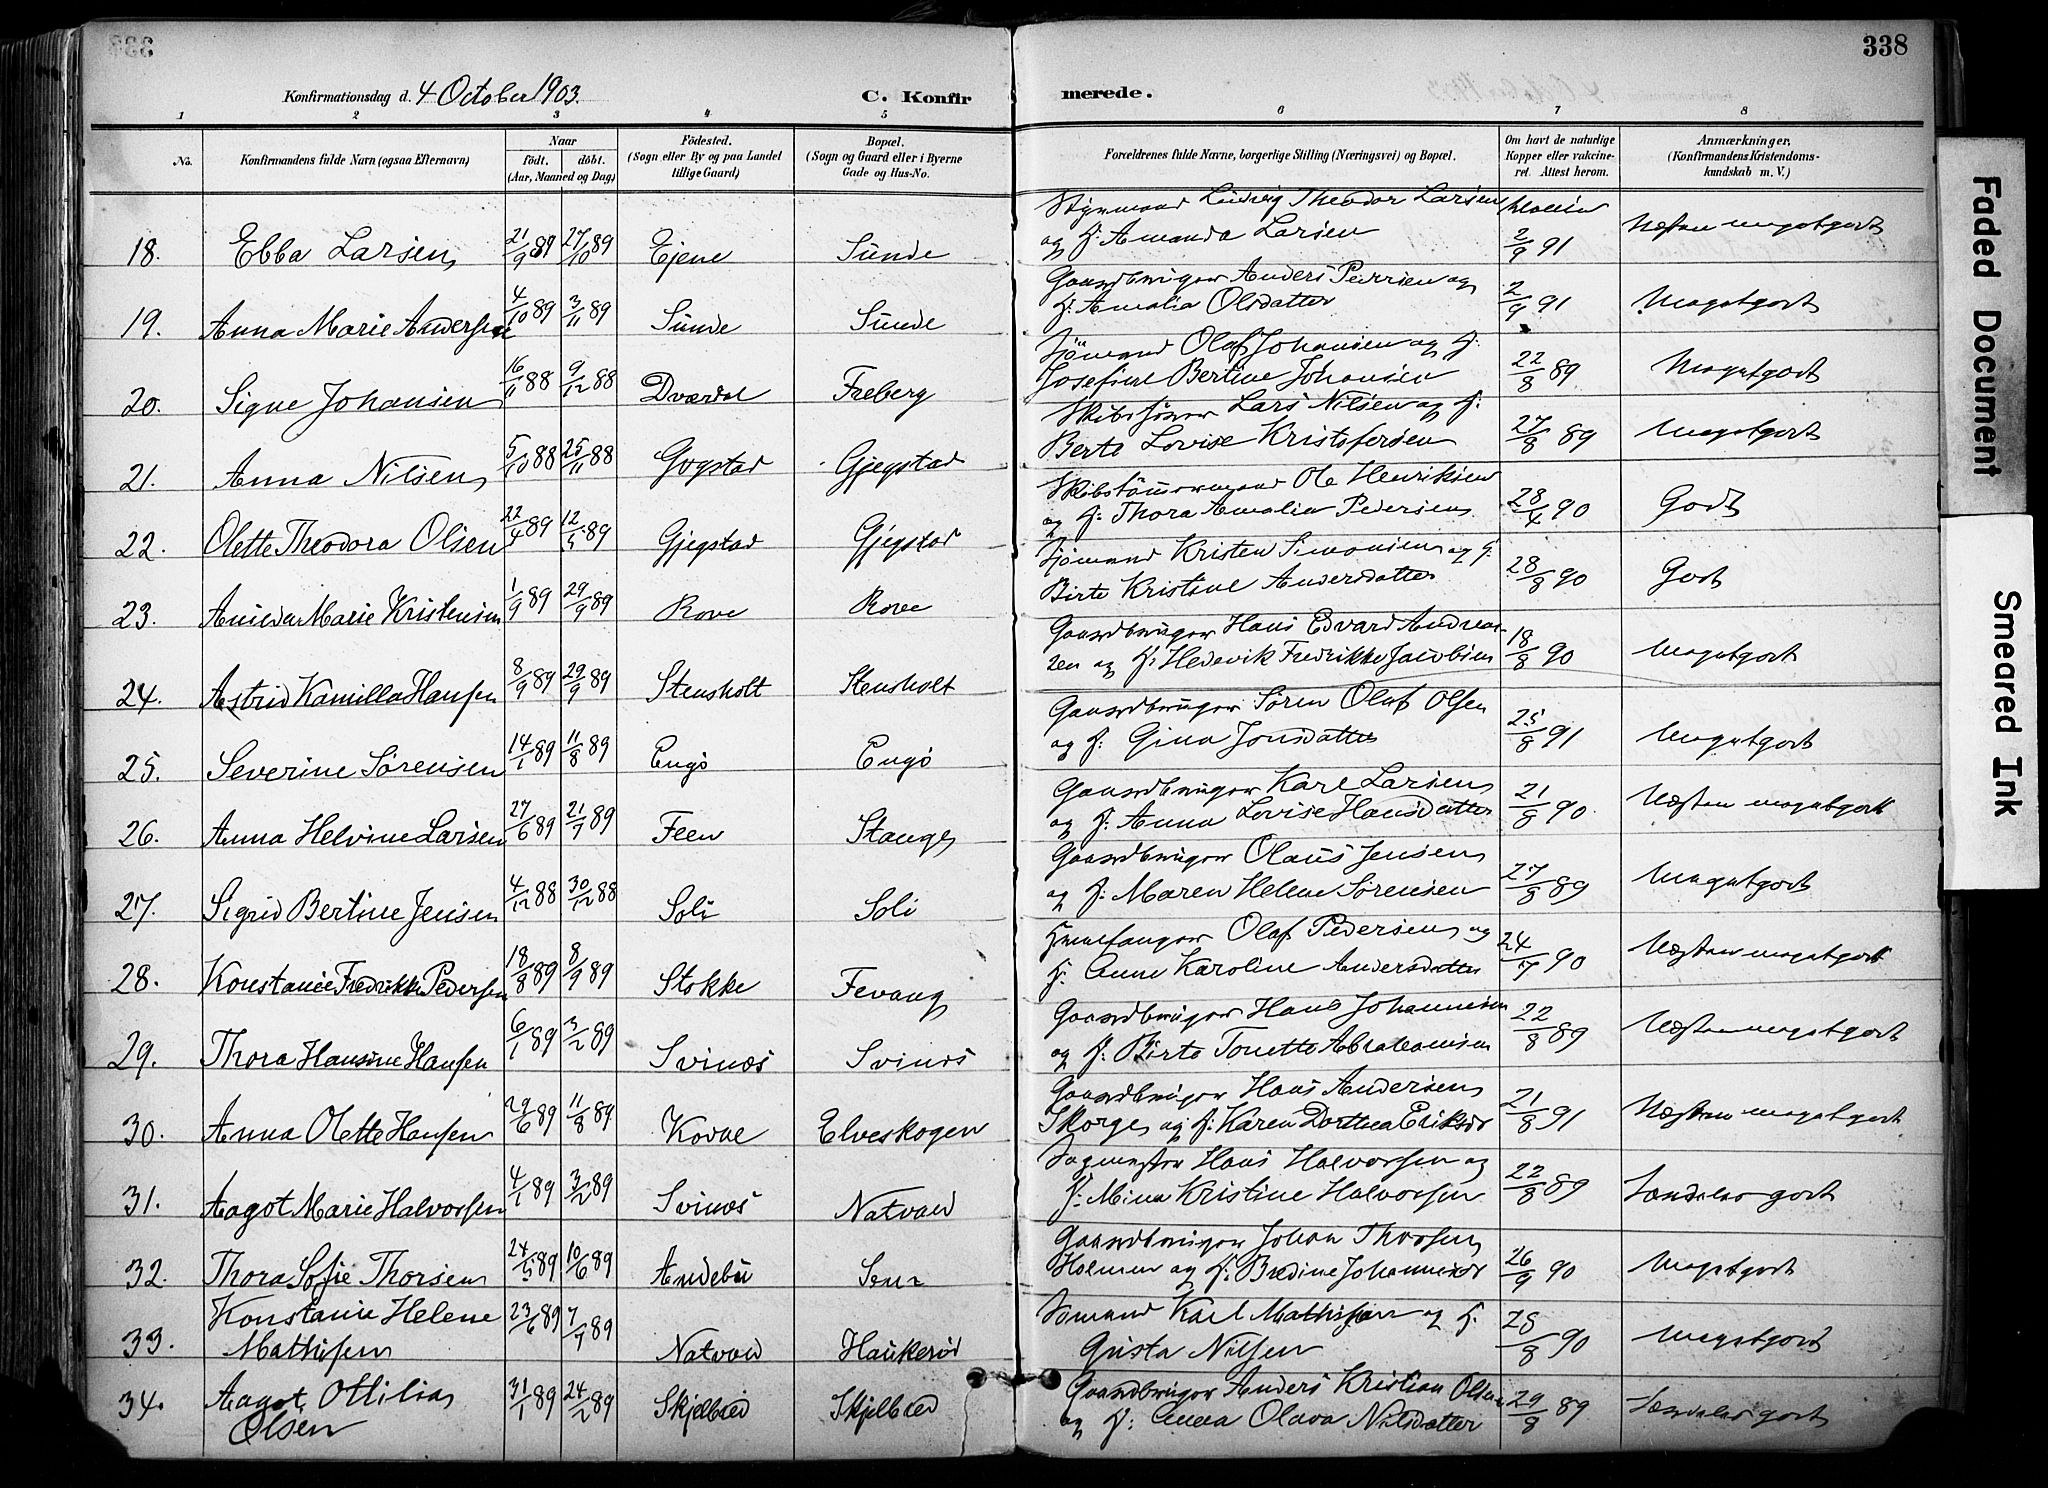 338
Konfirmationsdag d. 4 October 1903.
C. Konfirmerede.
1 2 3 4 5 6 7 8
No.
Konfirmandens fulde Navn (ogsaa Efternavn)
Naar
født. døbt.
(Aar, Maaned og Dag)
Fødested.
(Sogn eller By og paa Landet
tillige Gaard)
Bopæl.
(Sogn og Gaard eller i Byerne
Gade og Hus-No.
Forældrenes fulde Navne, borgerlige Stilling (Næringsvei) og Bopæl.
Om havt de naturlige
Kopper eller vakcine-
ret. Attest herom.
Anmærkninger.
(Konfirmandens Kristendoms-
kundskab m. V.)
Styrmand Ludvig Theodor Larsen
18. Ebba Larsen 21/9 89 27/10 89 Ejene Sunde og H. Amanda Larsen 2/9 91 Næsten megetgodt
Gaardbruger Anders Pedersen og
19. Anna Marie Andersen 4/10 89 3/11 89 Sunde Sunde H. Amalia Olsdatter 2/9 91 Megetgodt
Sjömand Olaf Johansen og H:
20. Signe Johansen 16/11 88 9/12 88 Dværdal Freberg Josefine Bertine Johansen 22/8 89 Megetgodt
Lars Nilsen og H:
21. Anna Nilsen 5/10 88 25/11 88 Gogstad Gjegstad Berte Lovise Kristofersen 27/8 89 Megetgodt
Skibstömmermand Ole Henriksen
22. Olette Theodora Olsen 22/4 89 12/5 89 Gjegstad Gjegstad og H: Thora Amalia Pedersen 28/4 90 Godt
Sjömand Kristen Simonsen og H:
23. Marie Kristensen 1/9 89 29/9 89 Rove Rove Birte Kristine Andersdatter 28/8 90 Godt
Gaardbruger Hans Edvard Andrea-
24. Astrid Kamilla Hansen 8/9 89 29/9 89 Stensholt Stensholt sen og H: Hedevik Fredrikke Jacobsen 18/8 90 Megetgodt
Gaardbruger Sören Olaf Olsen
25. Severine Sörensen 14/1 89 11/8 89 Engö Engö og H: Gina Jonsdatter 25/8 91 Megetgodt
Gaardbruger Karl Larsen
26. Anna Helvine Larsen 27/6 89 21/7 89 Feen Stange og H: Anna Lovise Hansdatter 21/8 90 Næsten megetgodt
Gaardbruger Olaus Jensen
27. Sigrid Bertine Jensen 4/12 88 30/12 88 Soli Soli og H: Maren Helene Sörensen 27/8 89 Megetgodt
Olaf Pedersen og
28. Konstance Fredrikke Pedersen 18/8 89 8/9 89 Stokke Fevang H: Anne Karoline Andersdatter 24/7 90 Næsten megetgodt
Gaardbruger Hans Johannesen
29. Thora Hansine Hansen 6/1 89 3/2 89 Svines Svines og H: Birte Tonette Abrahamsen 22/8 89 Næsten megetgodt
Gaardbruger Hans Andersen
30. Anna Olette Hansen 29/6 89 11/8 89 Elveskogen Skorge og H: Karen Dorthea Eriksdr 21/8 91 Næsten megetgodt
Sagmester Hans Halvorsen og
31. Aagot Marie Halvorsen 4/1 89 3/2 89 Svines Natvall H: Mina Kristine Halvorsen 22/8 89 Særdeles godt
Gaardbruger Johan Thorsen
32. Thora Sofie Thorsen 24/5 89 10/6 89 Andebu Holmen og H: Bredine Johannesdr 26/9 90 Megetgodt
Konstance Helene 23/6 89 7/7 89 Sömand Karl Mathisen og H.
33. Mathisen Natvall Haukeröd Gusta Nilsen 28/8 90 Megetgodt
34. Aagot Ottilia 31/1 89 24/2 89 Skjelbred Skjelbred Gaardbruger Anders Kristian Olsen 29/8 89 Særdeles godt
Olsen og H: Anna Olava Nilsdatter
Faded Document
Smeared Ink